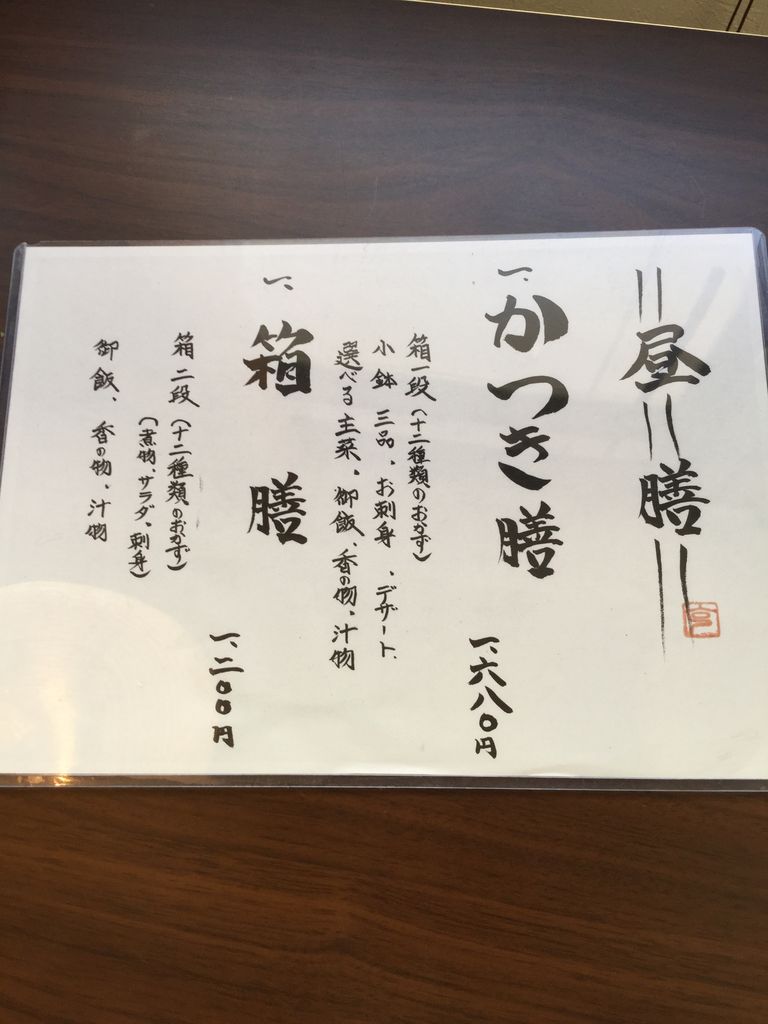 昼膳
一、かつき膳
箱一段（十二種類のおかず）
小鉢三品、お刺身、デザート、
選べる主菜、御飯、香の物、汁物
一、六八〇円
一、箱膳
箱二段（十二種類のおかず）
（煮物、サラダ、刺身）
御飯、香の物、汁物
一、二〇〇円